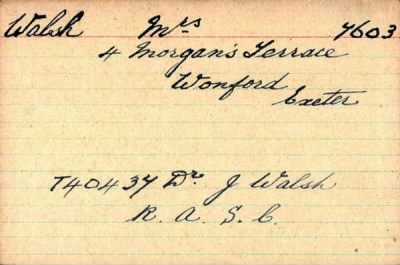 Walsh Mrs 7603
4 Morgan's Terrace
Wonford
Exeter
T40437 Dr. J Walsh
R. A. S. C.